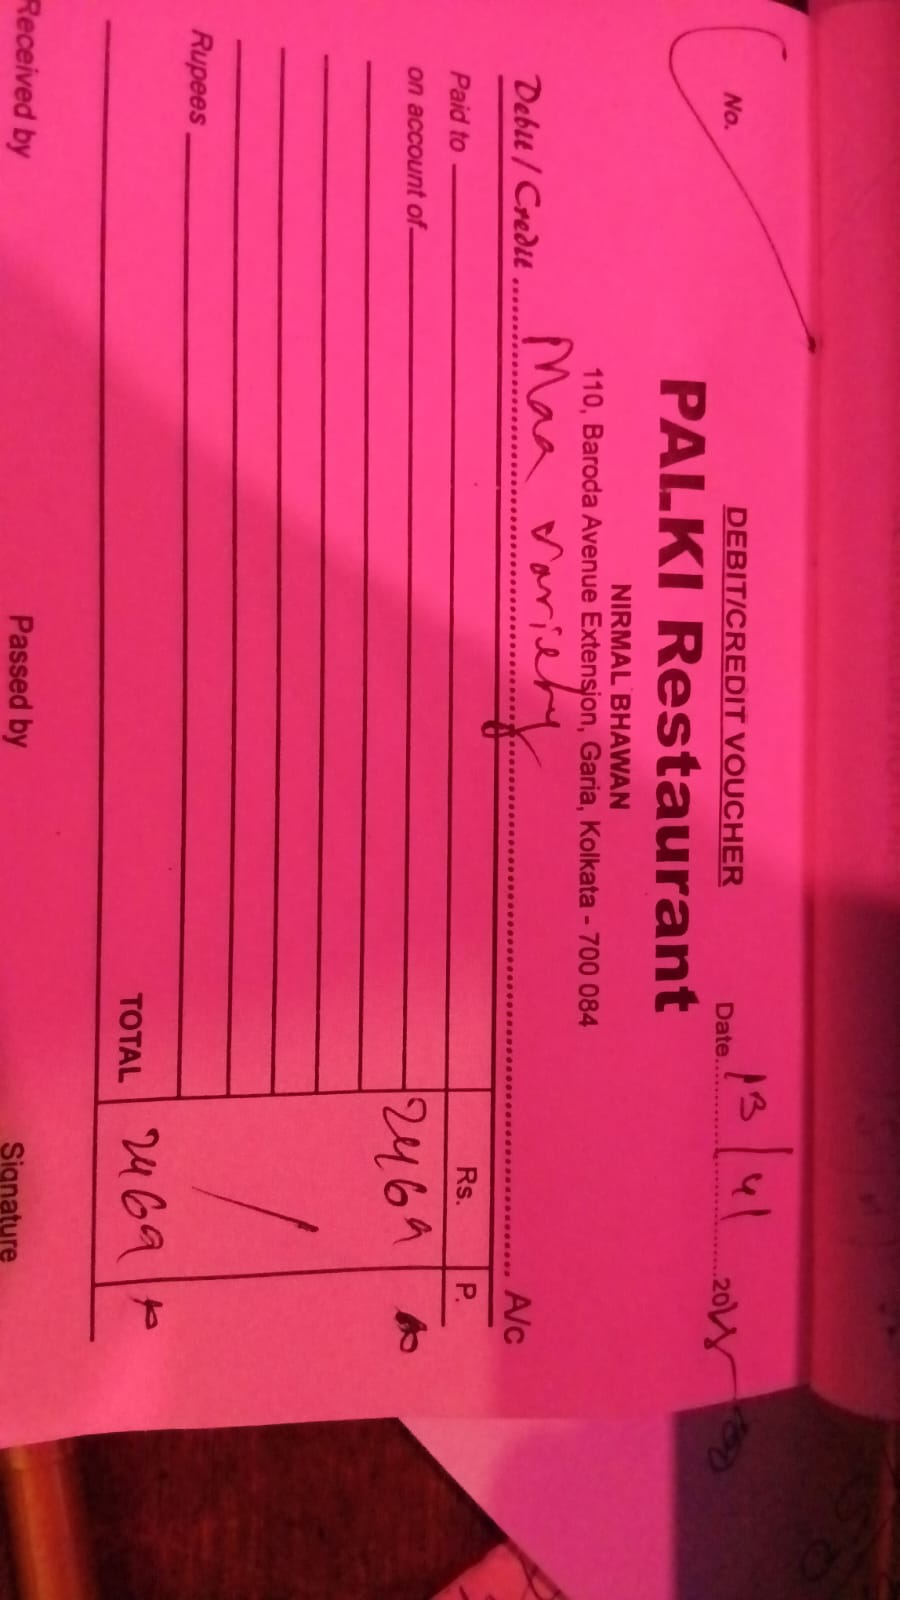 DEBIT/CREDIT VOUCHER
No.
Date 13/4/20
PALKI Restaurant
NIRMAL BHAWAN
110, Baroda Avenue Extension, Garia, Kolkata - 700 084
Debit / Credit Maa variety A/c
Paid to Rs. P.
on account of 2469
Rupees
TOTAL 2469
Received by Passed by Signature